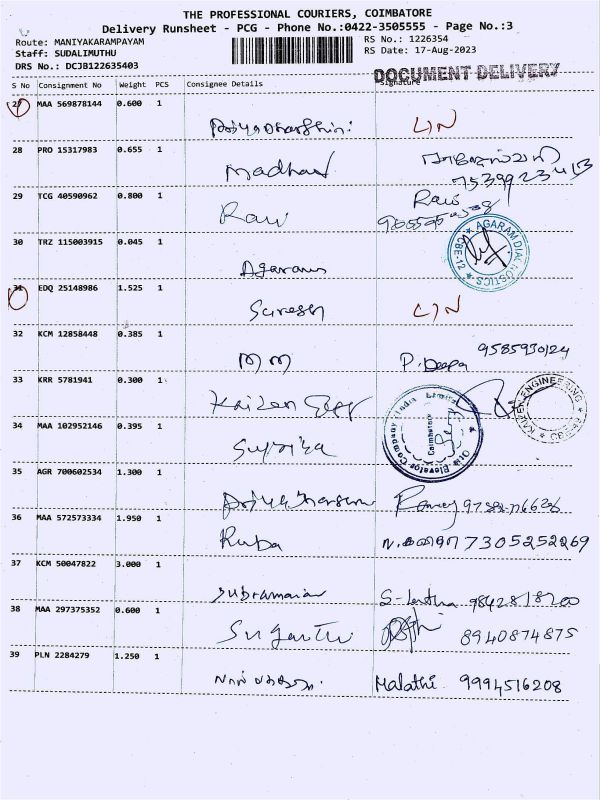 THE PROFESSIONAL COURIERS, COIMBATORE
Delivery Runsheet - PCG - Phone No.:0422-3505555 - Page No.:3
Route: MANIYAKARAMPAYAM
RS No.: 1226354
Staff: SUDALIMUTHU
RS Date: 17-Aug-2023
DRS No.: DCJB122635403
DOCUMENT DELIVERY
S No Consignment No Weight PCS Consignee Details Signature
27 MAA 569878144 0.600 1
28 PRO 15317983 0.655 1 Madhav
29 TCG 40590962 0.800 1 Ravi Ravi
30 TRZ 115003915 0.045 1 Agaram
AGARAM DIAGNOSTICS CBE-12
31 EDQ 25148986 1.525 1 Suresh
32 KCM 12858448 0.385 1 MM P. Deepa 9585930124
33 KRR 5781941 0.300 1 Kaizen Engg
KAIZEN ENGINEERING
34 MAA 102952146 0.395 1 Supriya
Otis Elevator Company India Limited Coimbatore
35 AGR 700602534 1.300 1
36 MAA 572573334 1.950 1 Ruba 7305252269
37 KCM 50047822 3.000 1 Subramanian S-Latha
38 MAA 297375352 0.600 1 8940874875
39 PLN 2284279 1.250 1 Malathi 9994516208